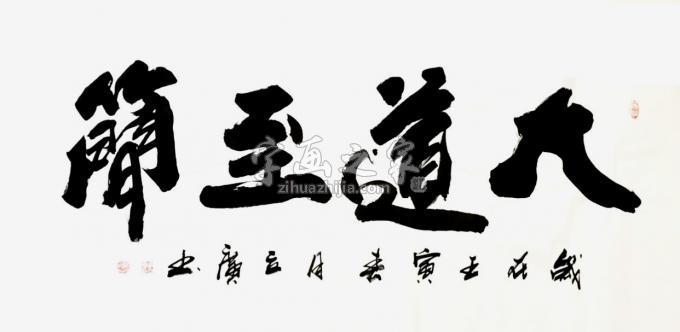 大道至簡
歲在壬寅春月立廣书
字画之家
zihuazhijia.com